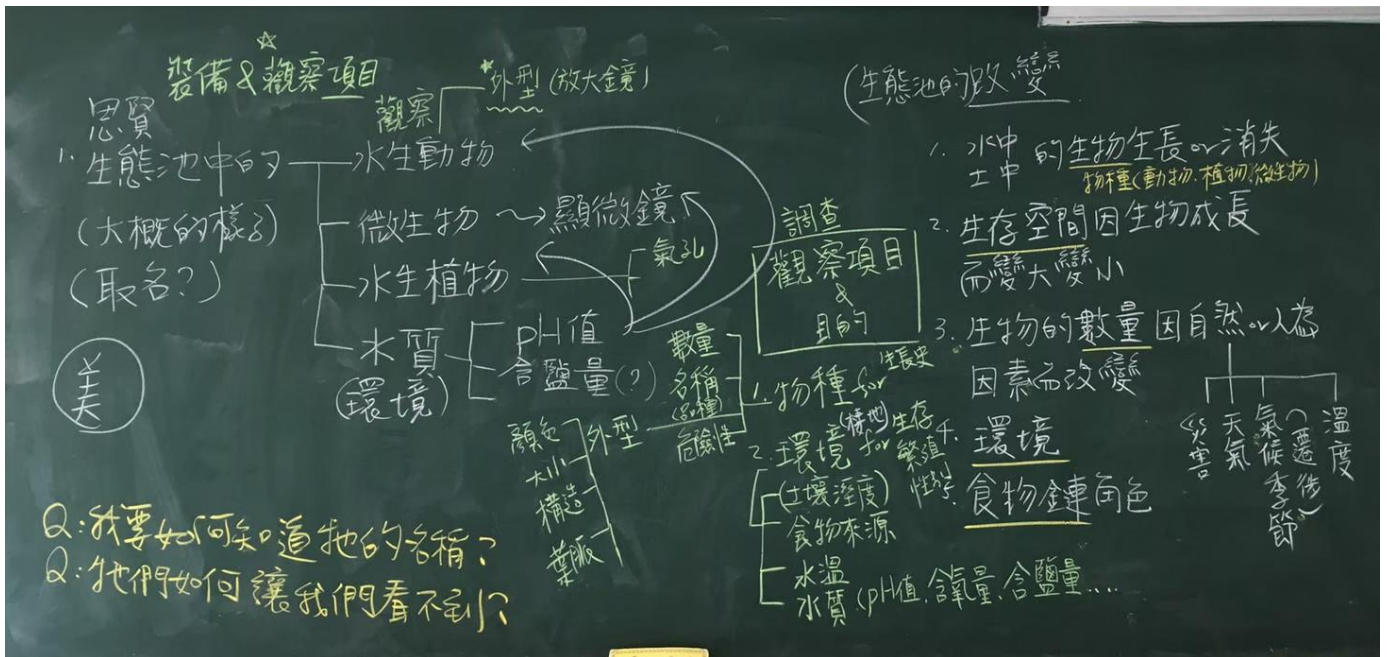 裝備&觀察項目
觀察
外型(放大鏡)
思賢
1. 生態池中的
(大概的樣子)
(取名?)
美
水生動物
微生物
顯微鏡
水生植物
氣孔
水質
(環境)
pH值
含鹽量(?)
Q:我要如何知道牠的名稱?
Q:牠們如何讓我們看不到?
調查
觀察項目
&
目的
1. 物種 for 生長史
數量
名稱
(品種)
危險性
外型
顏色
大小
構造
葉脈
2. 環境 for 生存
(棲地)
繁殖
性別
(土壤深度)
食物來源
水溫
水質(pH值、含氧量、含鹽量....
(生態池的改變
1. 水中
土中
的生物生長or消失
物種(動物、植物、微生物)
2. 生存空間因生物成長
而變大變小
3. 生物的數量因自然or人為
因素而改變
災害
天氣
氣候季節
(遷徙)
溫度
4. 環境
5. 食物鏈角色